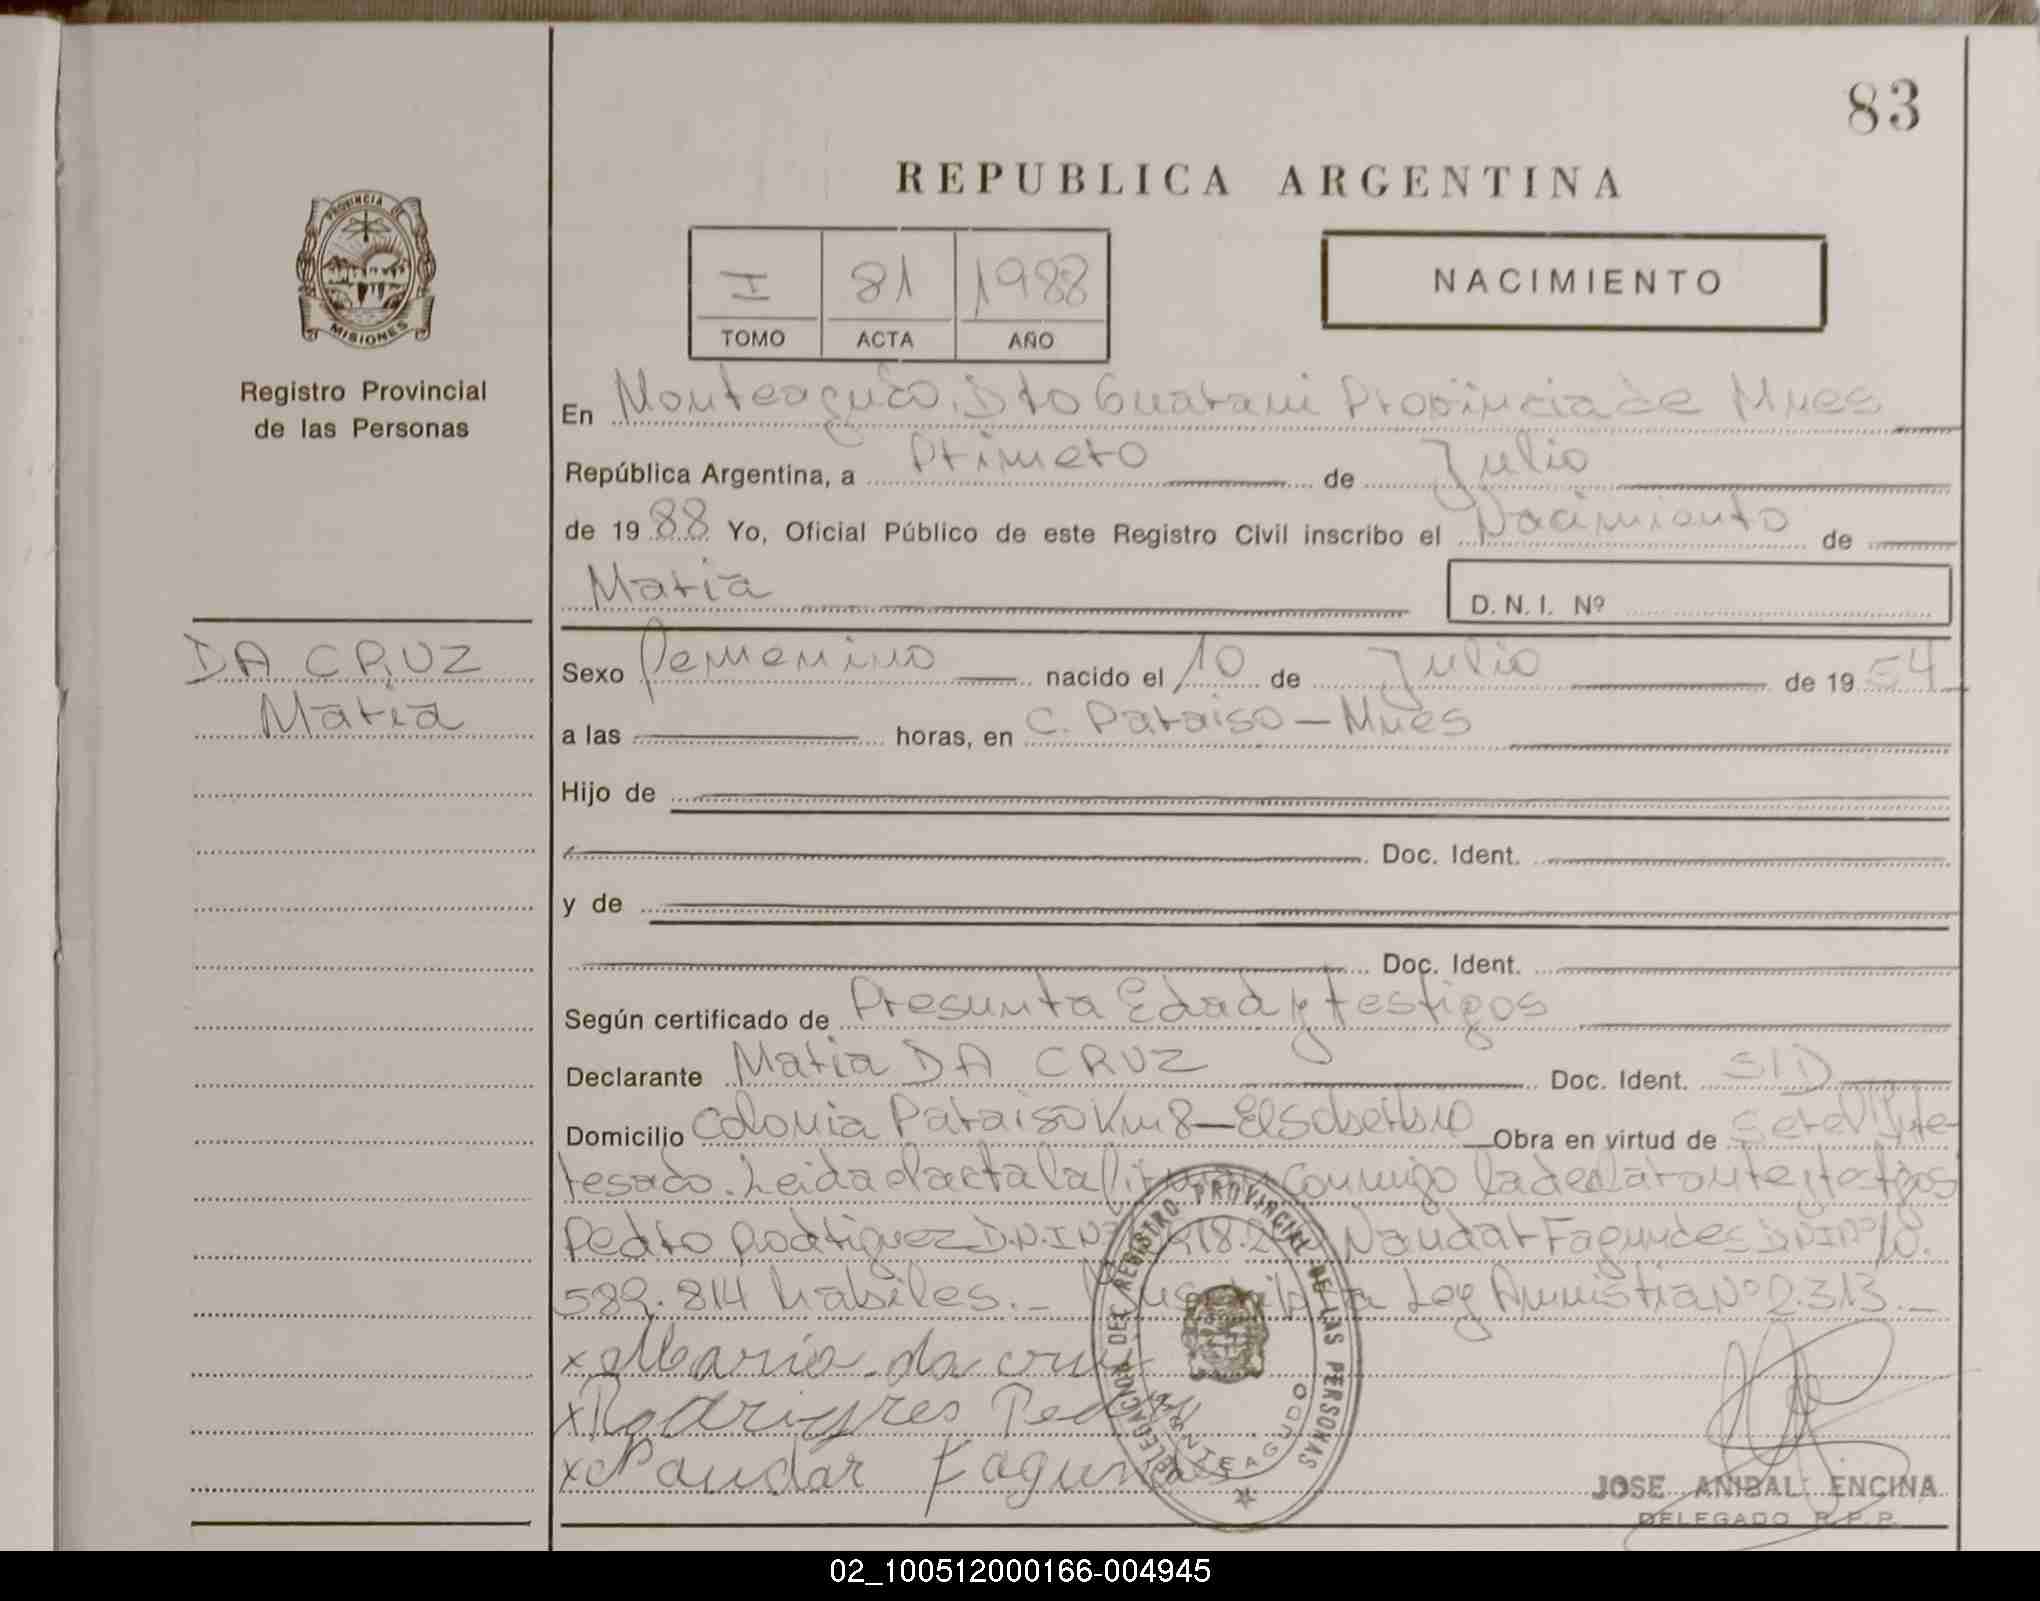 83
REPUBLICA ARGENTINA
PROVINCIA DE
MISIONES
Registro Provincial
de las Personas
I 81 1988
TOMO ACTA AÑO
NACIMIENTO
En Monteagudo, Dto Guarani Provincia de Mnes
República Argentina, a Primero de Julio
de 19 88 Yo, Oficial Público de este Registro Civil inscribo el Nacimiento de
Maria
D. N. I. Nº
DA CRUZ
Maria
Sexo femenino nacido el 10 de Julio de 19 54
a las horas, en C. Paraiso - Mnes
Hijo de
Doc. Ident.
y de
Doc. Ident.
Según certificado de Presunta Edad y testigos
Declarante Maria DA CRUZ Doc. Ident. S/D
Domicilio Colonia Paraiso Km 8 - El Soberbio Obra en virtud de ser el inte-
resado. Leida el acta la firman conmigo la declarante y testigos
Pedro Rodriguez D.N.I Nº 218.2 Naudar Fagundes D.N.I Nº 10.
589.814 habiles. - Ley Amnistia Nº 2.313. -
x Maria da cruz
x Rodrigres Pedro
x Naudar Fagundes
DELEGACION DEL REGISTRO PROVINCIAL DE LAS PERSONAS
MONTEAGUDO
JOSE ANIBAL ENCINA
DELEGADO R.P.P.
02_100512000166-004945